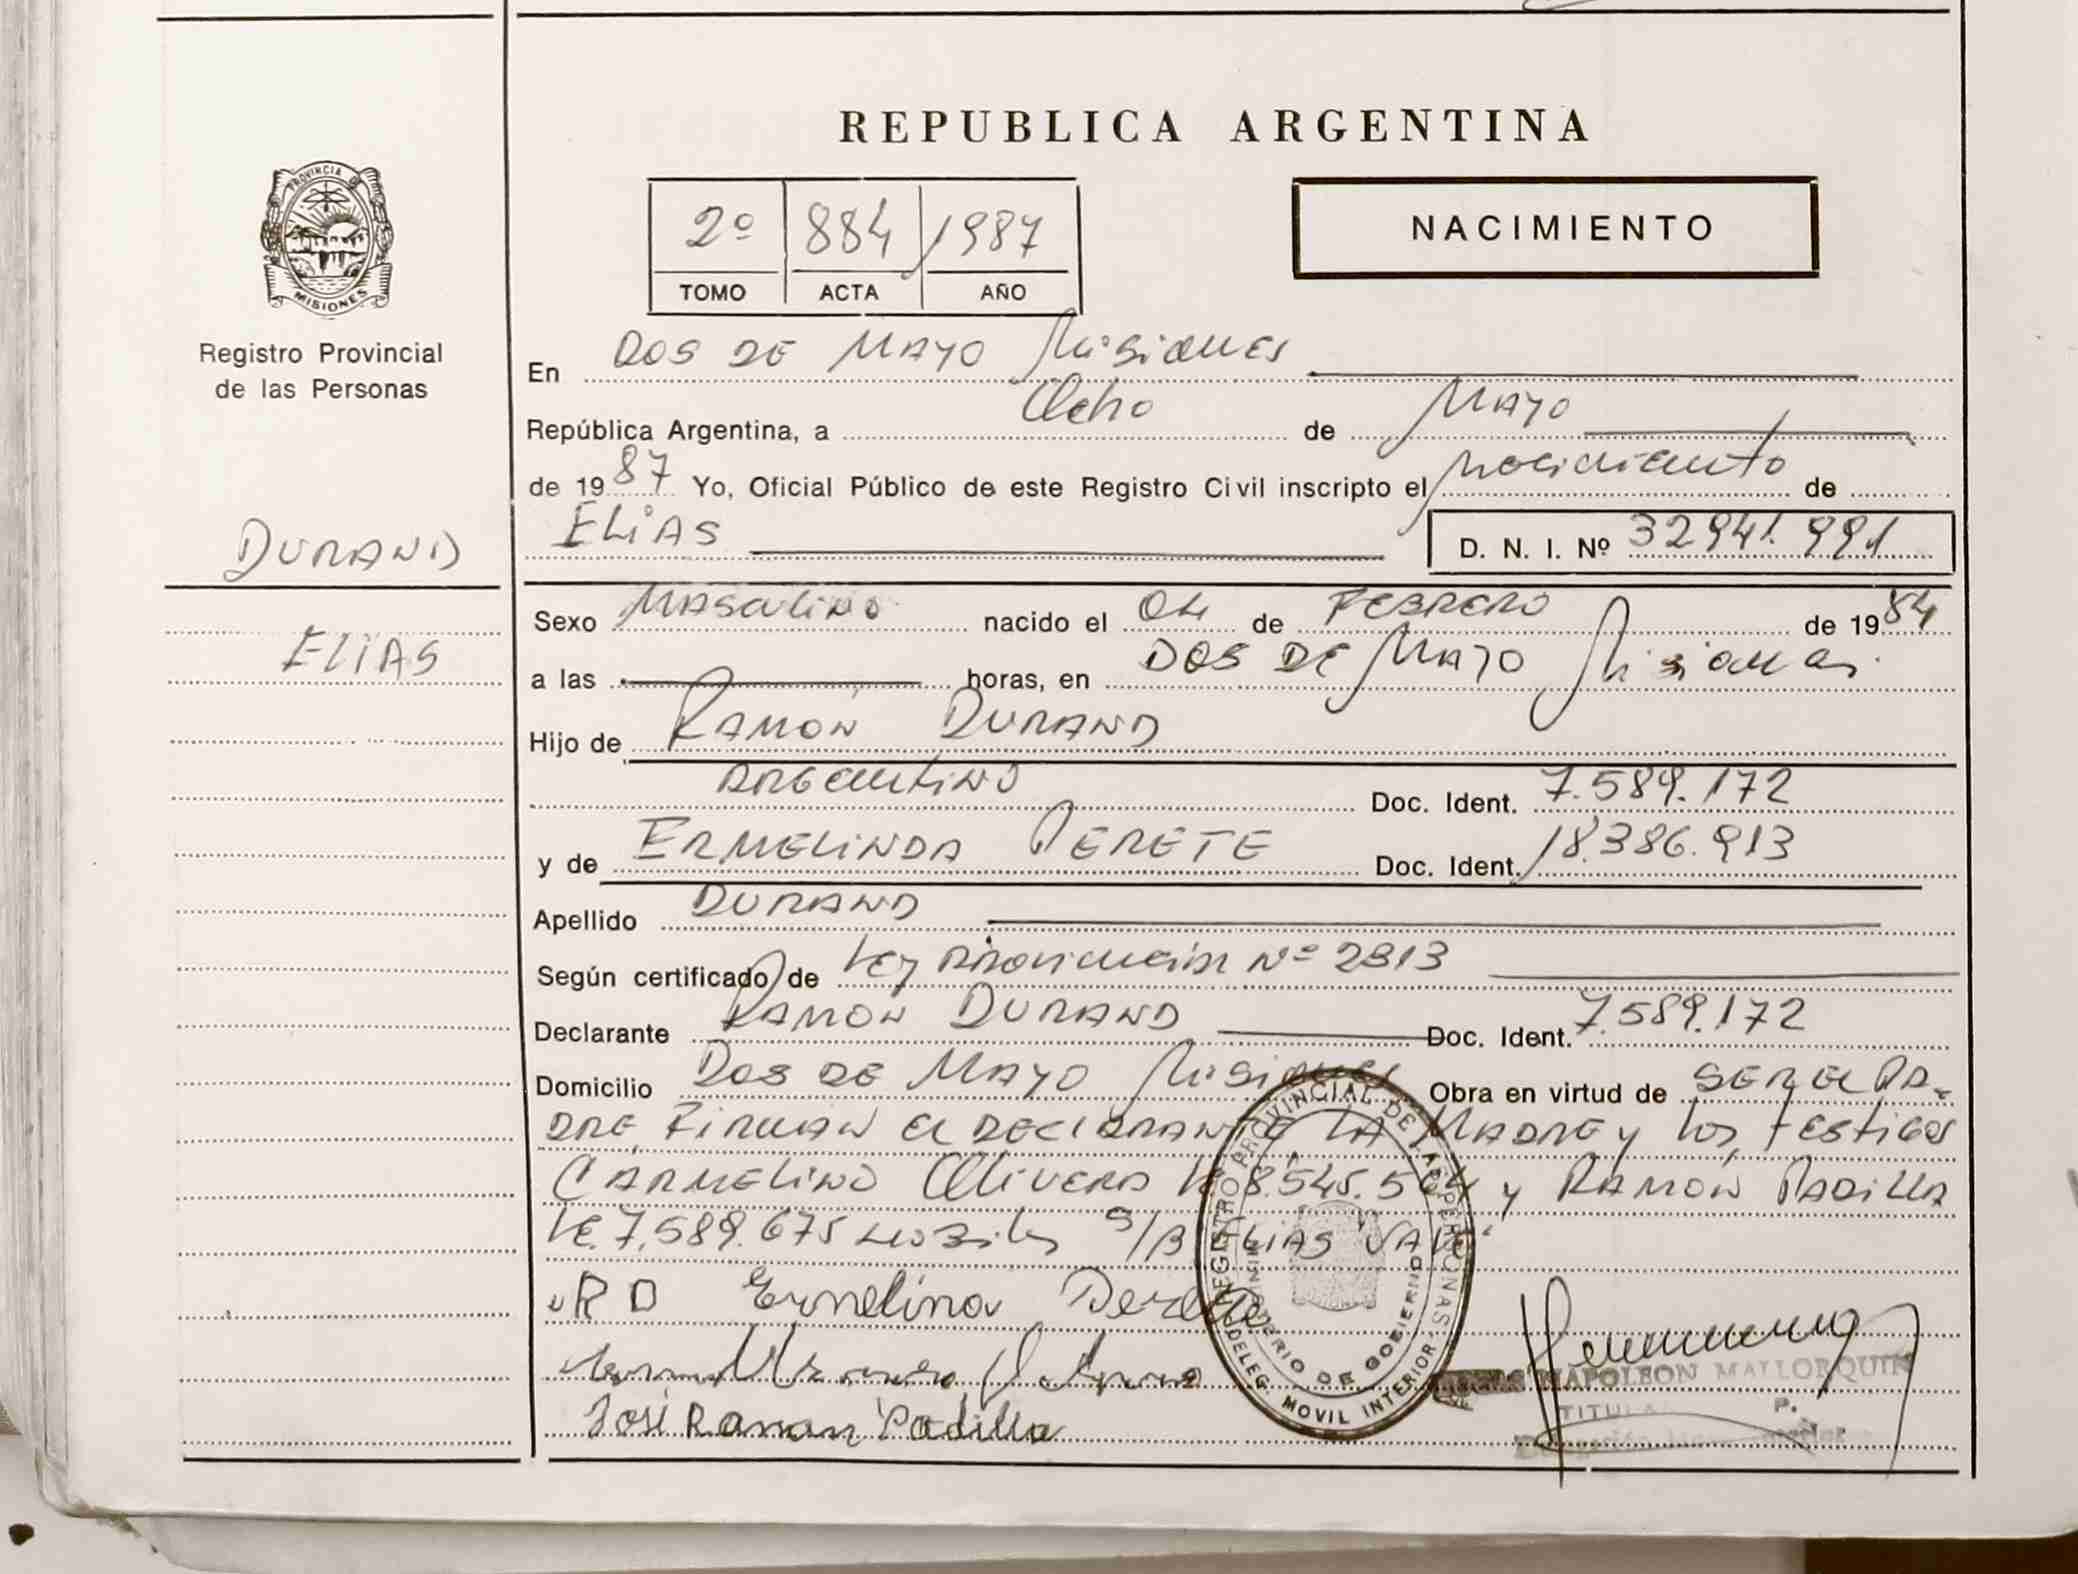 REPUBLICA ARGENTINA
2º 884 1987
TOMO ACTA AÑO
NACIMIENTO
PROVINCIA DE
MISIONES
Registro Provincial
de las Personas
DURAND
ELIAS
En DOS DE MAYO Misiones
República Argentina, a Ocho de MAYO
de 1987 Yo, Oficial Público de este Registro Civil inscripto el nacimiento de
ELIAS D. N. I. Nº 32941.991
Sexo MASCULINO nacido el 04 de FEBRERO de 1984
a las horas, en DOS DE MAYO Misiones
Hijo de RAMON DURAND
ARGENTINO Doc. Ident. 7.589.172
y de ERMELINDA PERETE Doc. Ident. 18.386.913
Apellido DURAND
Según certificado de Ley PROVINCIAL Nº 2313
Declarante RAMON DURAND Doc. Ident. 7.589.172
Domicilio DOS DE MAYO Misiones Obra en virtud de SER EL PA-
DRE, FIRMAN EL DECLARANTE LA MADRE y los testigos
CARMELINO Olivera 8.545.504 y RAMÓN PADILLA
LE. 7.589.675 S/B ELIAS VALE
RD Ermelina Perete
José Ramon Padilla
REGISTRO PROVINCIAL DE LAS PERSONAS
MINISTERIO DE GOBIERNO
DELEG. MOVIL INTERIOR
NAPOLEON MALLORQUIN
TITULAR P.